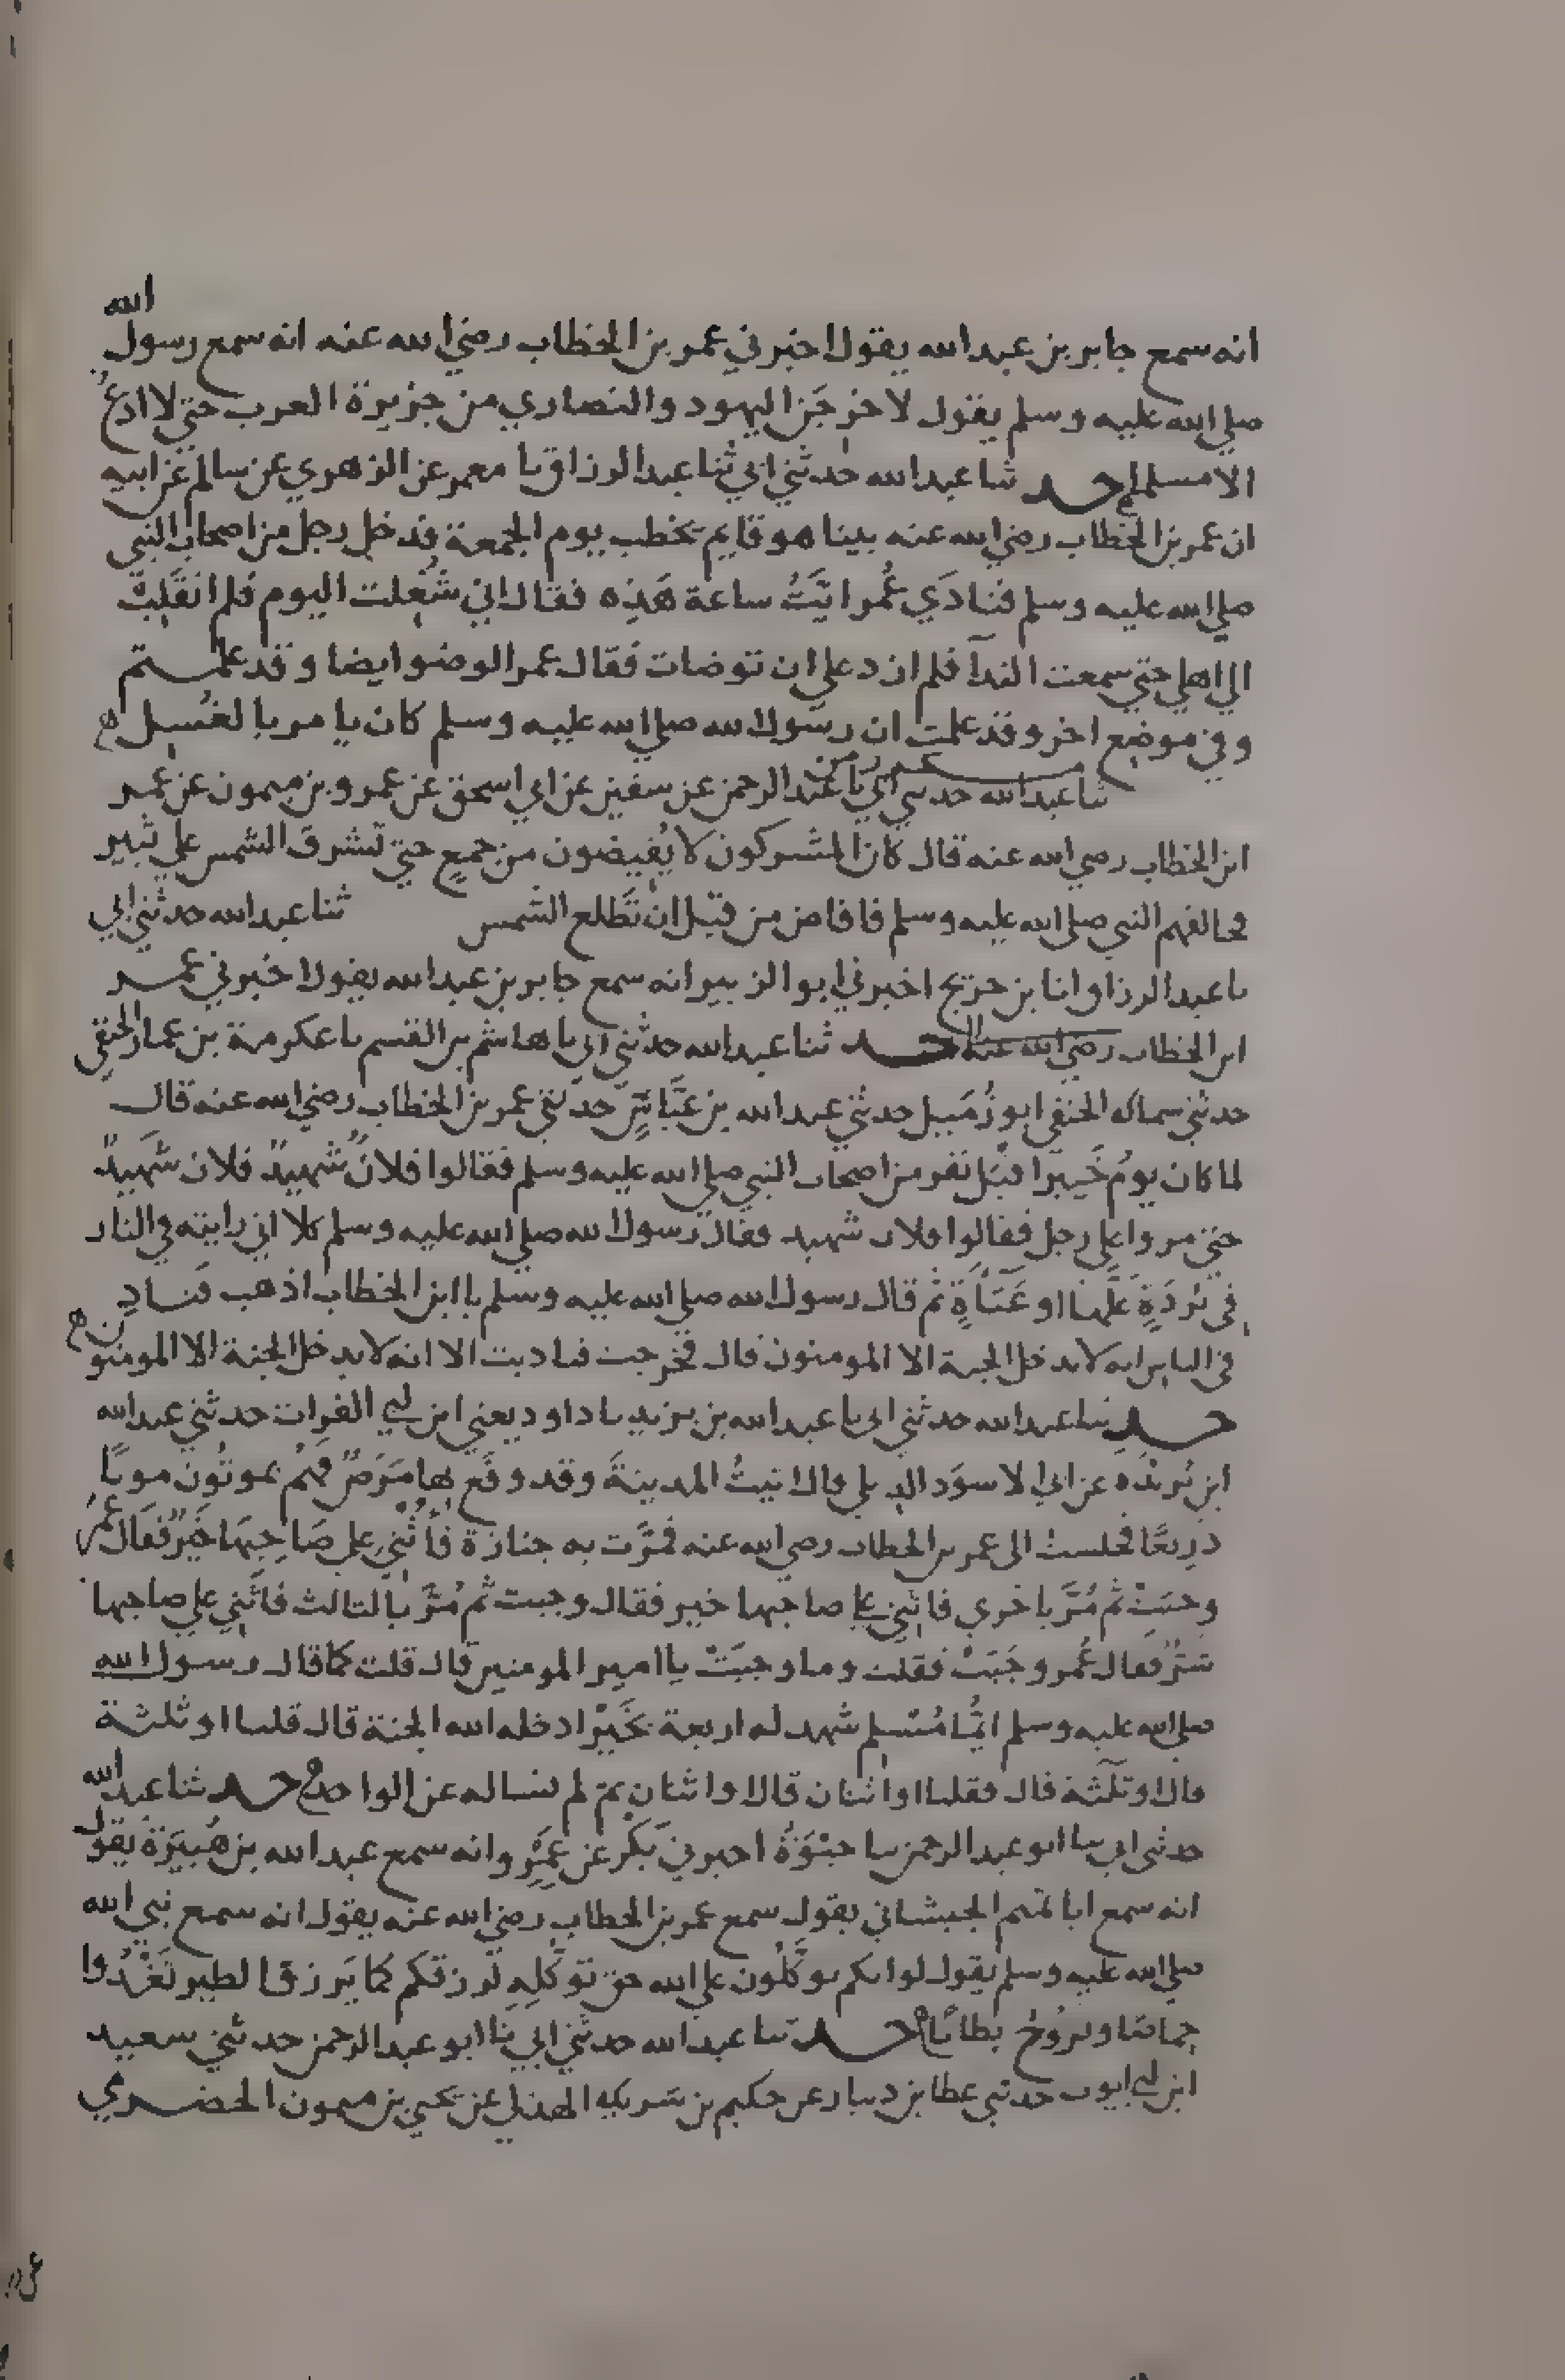 انه سمع جابر بن عبد الله يقول اخبرني عمر بن الخطاب رضي الله عنه انه سمع رسول الله
صلي الله عليه وسلم يقول لاخرجَن اليهود والنصاري من جزيرة العرب حتي لا ادعُ
الا مسلما حد ثنا عبد الله حدثني ابي ثنا عبد الرزاق نا معمر عن الزهري عن سالم عن ابيه
ان عمر بن الخطاب رضي الله عنه بينا هو قايم يخطب يوم الجمعة فدخل رجل من اصحاب النبي
صلي الله عليه وسلم فنادَي عُمر ايَّتُ ساعة هَذِه فقال اني شُغلت اليوم فلم انقَلِبْ
الي اهلي حتي سمعت الندآ فلم ازد علي ان توضات فقال عمر الوضو ايضا وقد علمتم
وفي موضع اخر وقد علمت ان رسول الله صلي الله عليه وسلم كان يامر بالغسل
ثنا عبد الله حدثني ابي نا عبد الرحمن عن سفين عن ابي اسحق عن عمرو بن ميمون عن عمر
ابن الخطاب رضي الله عنه قال كان المشركون لا يُفيضون من جمعٍ حتي تشرق الشمس علي ثبير
فخالفهم النبي صلي الله عليه وسلم فافاض من قبل ان تَطلع الشمس ثنا عبد الله حدثني ابي
نا عبد الرزاق انا بن جريج اخبرني ابو الزبير انه سمع جابر بن عبد الله يقول اخبرني عمر
ابن الخطاب رضي الله عنه حد ثنا عبد الله حدثني ابي نا هاشم بن القسم نا عكرمة بن عمار الحنفي
حدثني سماك الحنفي ابو زُمَيل حدثني عبد الله بن عَبَّاسٍ حدثني عمر بن الخطاب رضي الله عنه قال
لما كان يومُ خَيبرَ اقبَل نفر من اصحاب النبي صلي الله عليه وسلم فقالوا فلانٌ شهيدٌ فلان شَهيدٌ
حتي مروا علي رجل فقالوا فلان شهيد فقال رسول الله صلي الله عليه وسلم كلا اني رايته في النار
في بُردَةٍ غَلَّها او عَبَآةٍ ثم قال رسول الله صلي الله عليه وسلم يا ابن الخطاب اذهب فَنادِ
في الناس انه لا يدخل الجنة الا المومنون قال فخرجت فناديت الا انه لا يدخل الجنة الا المومنون
حد ثنا عبد الله حدثني ابي نا عبد الله بن يزيد نا داود يعني ابن ابي الفرات حدثني عبد الله
ابن بُريْدة عن ابي الاسوَد الديلي قال اتيتُ المدينةَ وقد وقَع بها مَرَضٌ فَهُم يموتُون موتًا
ذريعًا فجلستُ الي عمر بن الخطاب رضي الله عنه فمَرَّت به جنازة فأُثْنِي علي صَاحِبِهَا خَيرٌ فقَال عمر
وجبَتْ ثم مُرَّ باخري فاثني علي صاحبها خير فقال وجبت ثم مُرَّ بالثالث فاثني علي صاحبها
شرٌ فقال عُمر وجَبَتْ فقلت وما وجبَتْ يا امير المومنين قال قلت كما قال رسول الله
صلي الله عليه وسلم ايُّما مُسْلم شهد له اربعة بخَيْر ادخله الله الجنة قال قلنا او ثلثة
قال او ثلثة قال فقلنا او اثنان قال او اثنان ثم لم نساله عن الواحد حد ثنا عبد الله
حدثني ابي ثنا ابو عبد الرحمن نا حَيْوَةُ اخبرني بَكْر عن عَمْرو انه سمع عبد الله بن هُبَيْرَةَ يقول
انه سمع ابا تميم الجيشاني يقول سمع عمر بن الخطاب رضي الله عنه يقول انه سمع نبي الله
صلي الله عليه وسلم يقول لو انكم توكَّلُون علي الله حق توكُّلِهِ لرزقكم كما يَرزق الطير تَغْدُوا
خماصًا وتروُحُ بطانًا حد ثنا عبد الله حدثني ابي نا ابو عبد الرحمن حدثني سعيد
ابن ابي ايوب حدثني عطا بن دينار عن حكيم بن شريك الهذلي عن يحيي بن ميمون الحضرمي